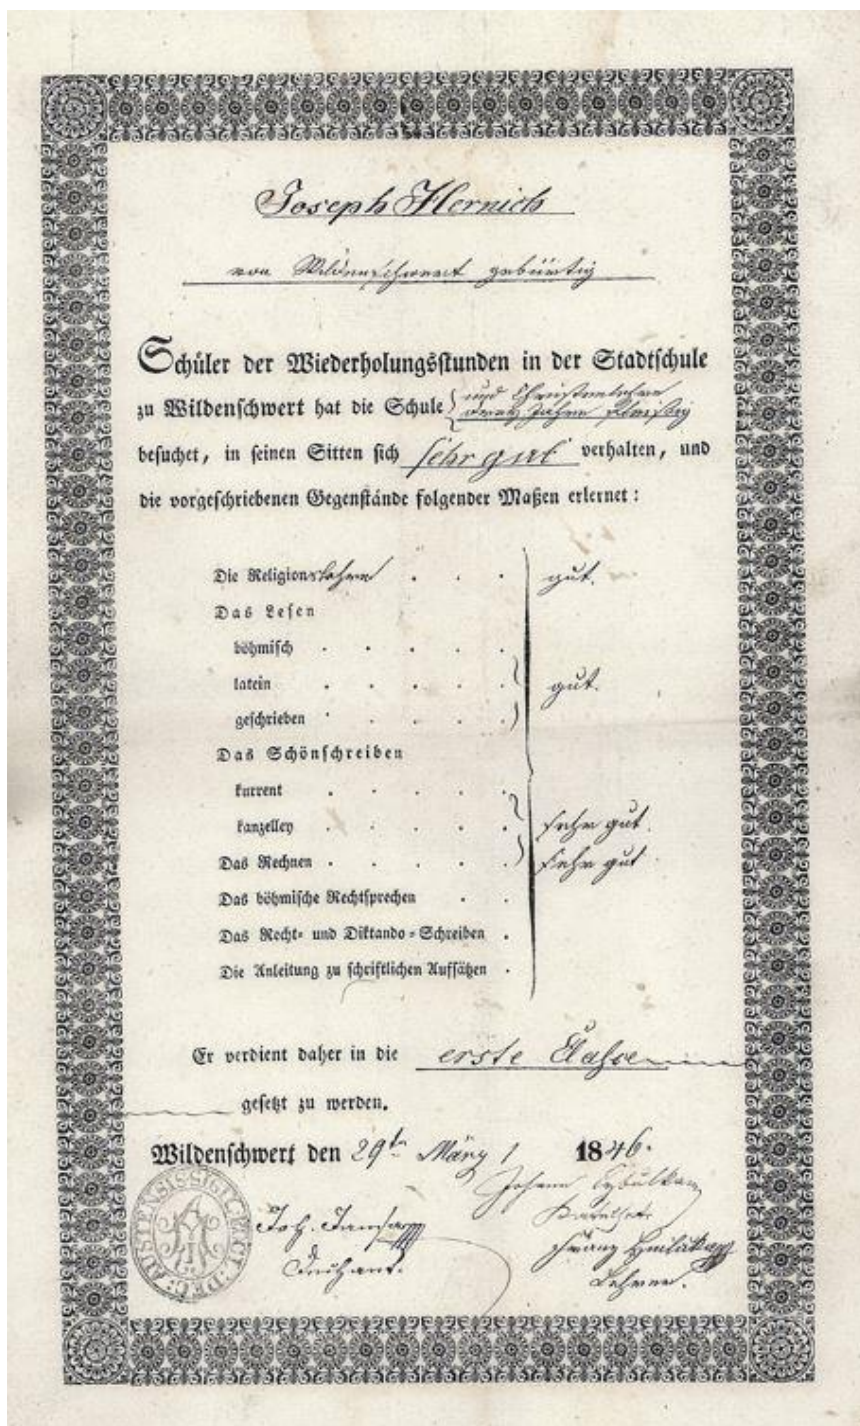 Joseph Hernich
von Wildenschwert gebürtig
Schüler der Wiederholungsstunden in der Stadtschule
und Christenlehre
zu Wildenschwert hat die Schule drey Jahre fleißig
besuchet, in seinen Sitten sich sehr gut verhalten, und
die vorgeschriebenen Gegenstände folgender Maßen erlernet:
Die Religionslehre . . . gut.
Das Lesen
böhmisch . . . . .
latein . . . . . gut.
geschrieben . . . . .
Das Schönschreiben
kurrent . . . . .
kanzelley . . . . . sehr gut.
Das Rechnen . . . . . sehr gut
Das böhmische Rechtsprechen . .
Das Recht- und Diktando-Schreiben .
Die Anleitung zu schriftlichen Aufsätzen .
Er verdient daher in die erste Classe
gesetzt zu werden.
Wildenschwert den 29t März 1846.
Johann
Joh.
Dechant.
Franz
Lehrer.